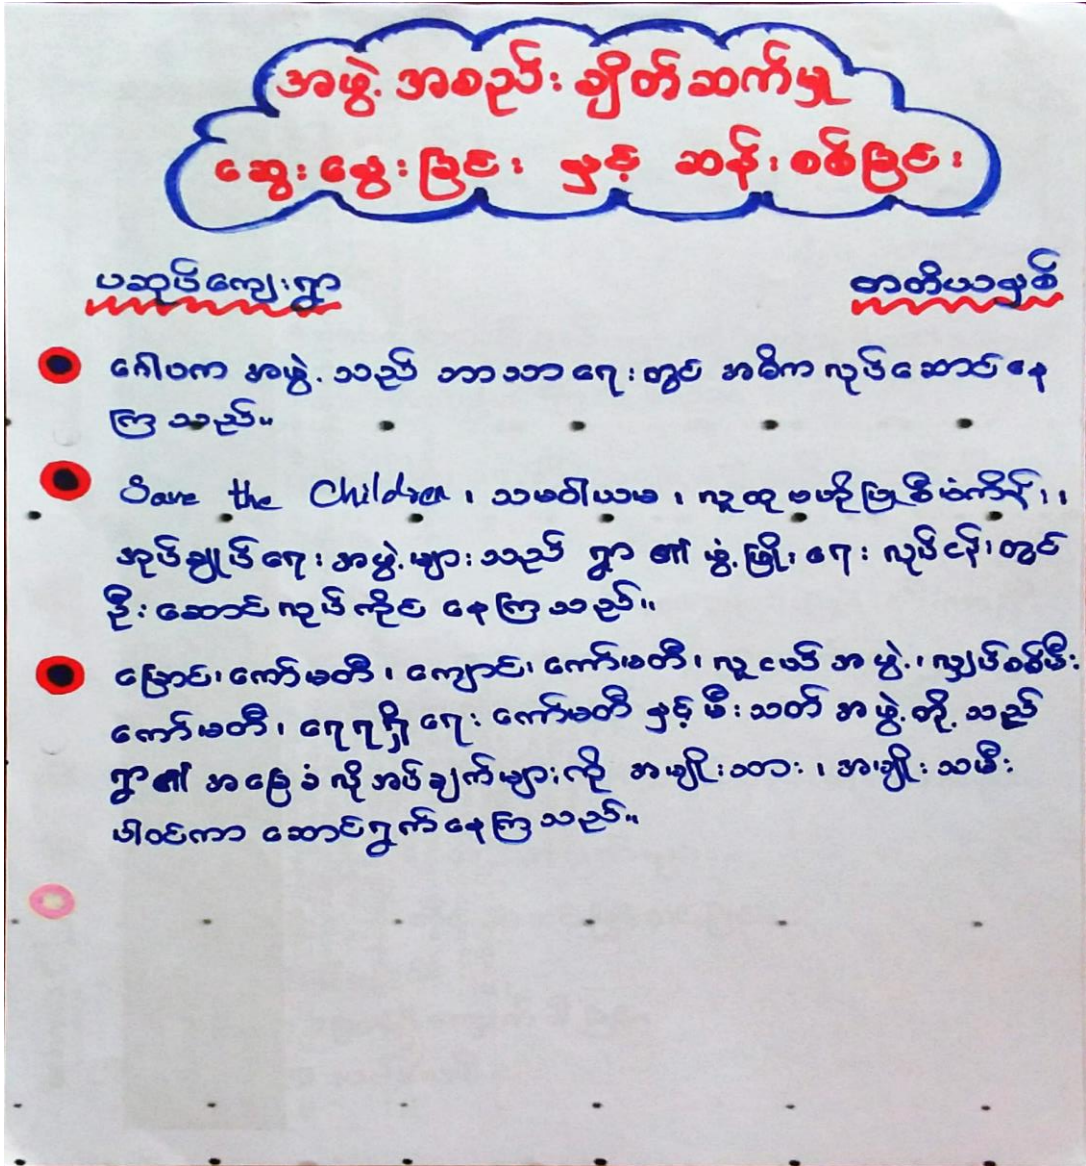 အဖွဲ့အစည်းချိတ်ဆက်မှု
ဆွေးနွေးခြင်း နှင့် ဆန်းစစ်ခြင်း
ပဆုပ်ကျေးရွာ တတိယနှစ်
ဂေါပက အဖွဲ့သည် ဘာသာရေးတွင် အဓိက လုပ်ဆောင်နေ
ကြသည်။
Save the Children ၊ သမဝါယမ ၊ လူထုဗဟိုပြုစီမံကိန်း ၊
အုပ်ချုပ်ရေးအဖွဲ့များသည် ရွာ၏ ဖွံ့ဖြိုးရေး လုပ်ငန်းတွင်
ဦးဆောင်လုပ်ကိုင် နေကြသည်။
မြောင်းကော်မတီ ၊ ကျောင်းကော်မတီ ၊ လူငယ်အဖွဲ့ ၊ လျှပ်စစ်မီး
ကော်မတီ ၊ ရေရရှိရေး ကော်မတီ နှင့် မီးသတ်အဖွဲ့တို့သည်
ရွာ၏ အခြေခံလိုအပ်ချက်များကို အမျိုးသား ၊ အမျိုးသမီး
ပါဝင်ကာ ဆောင်ရွက်နေကြသည်။